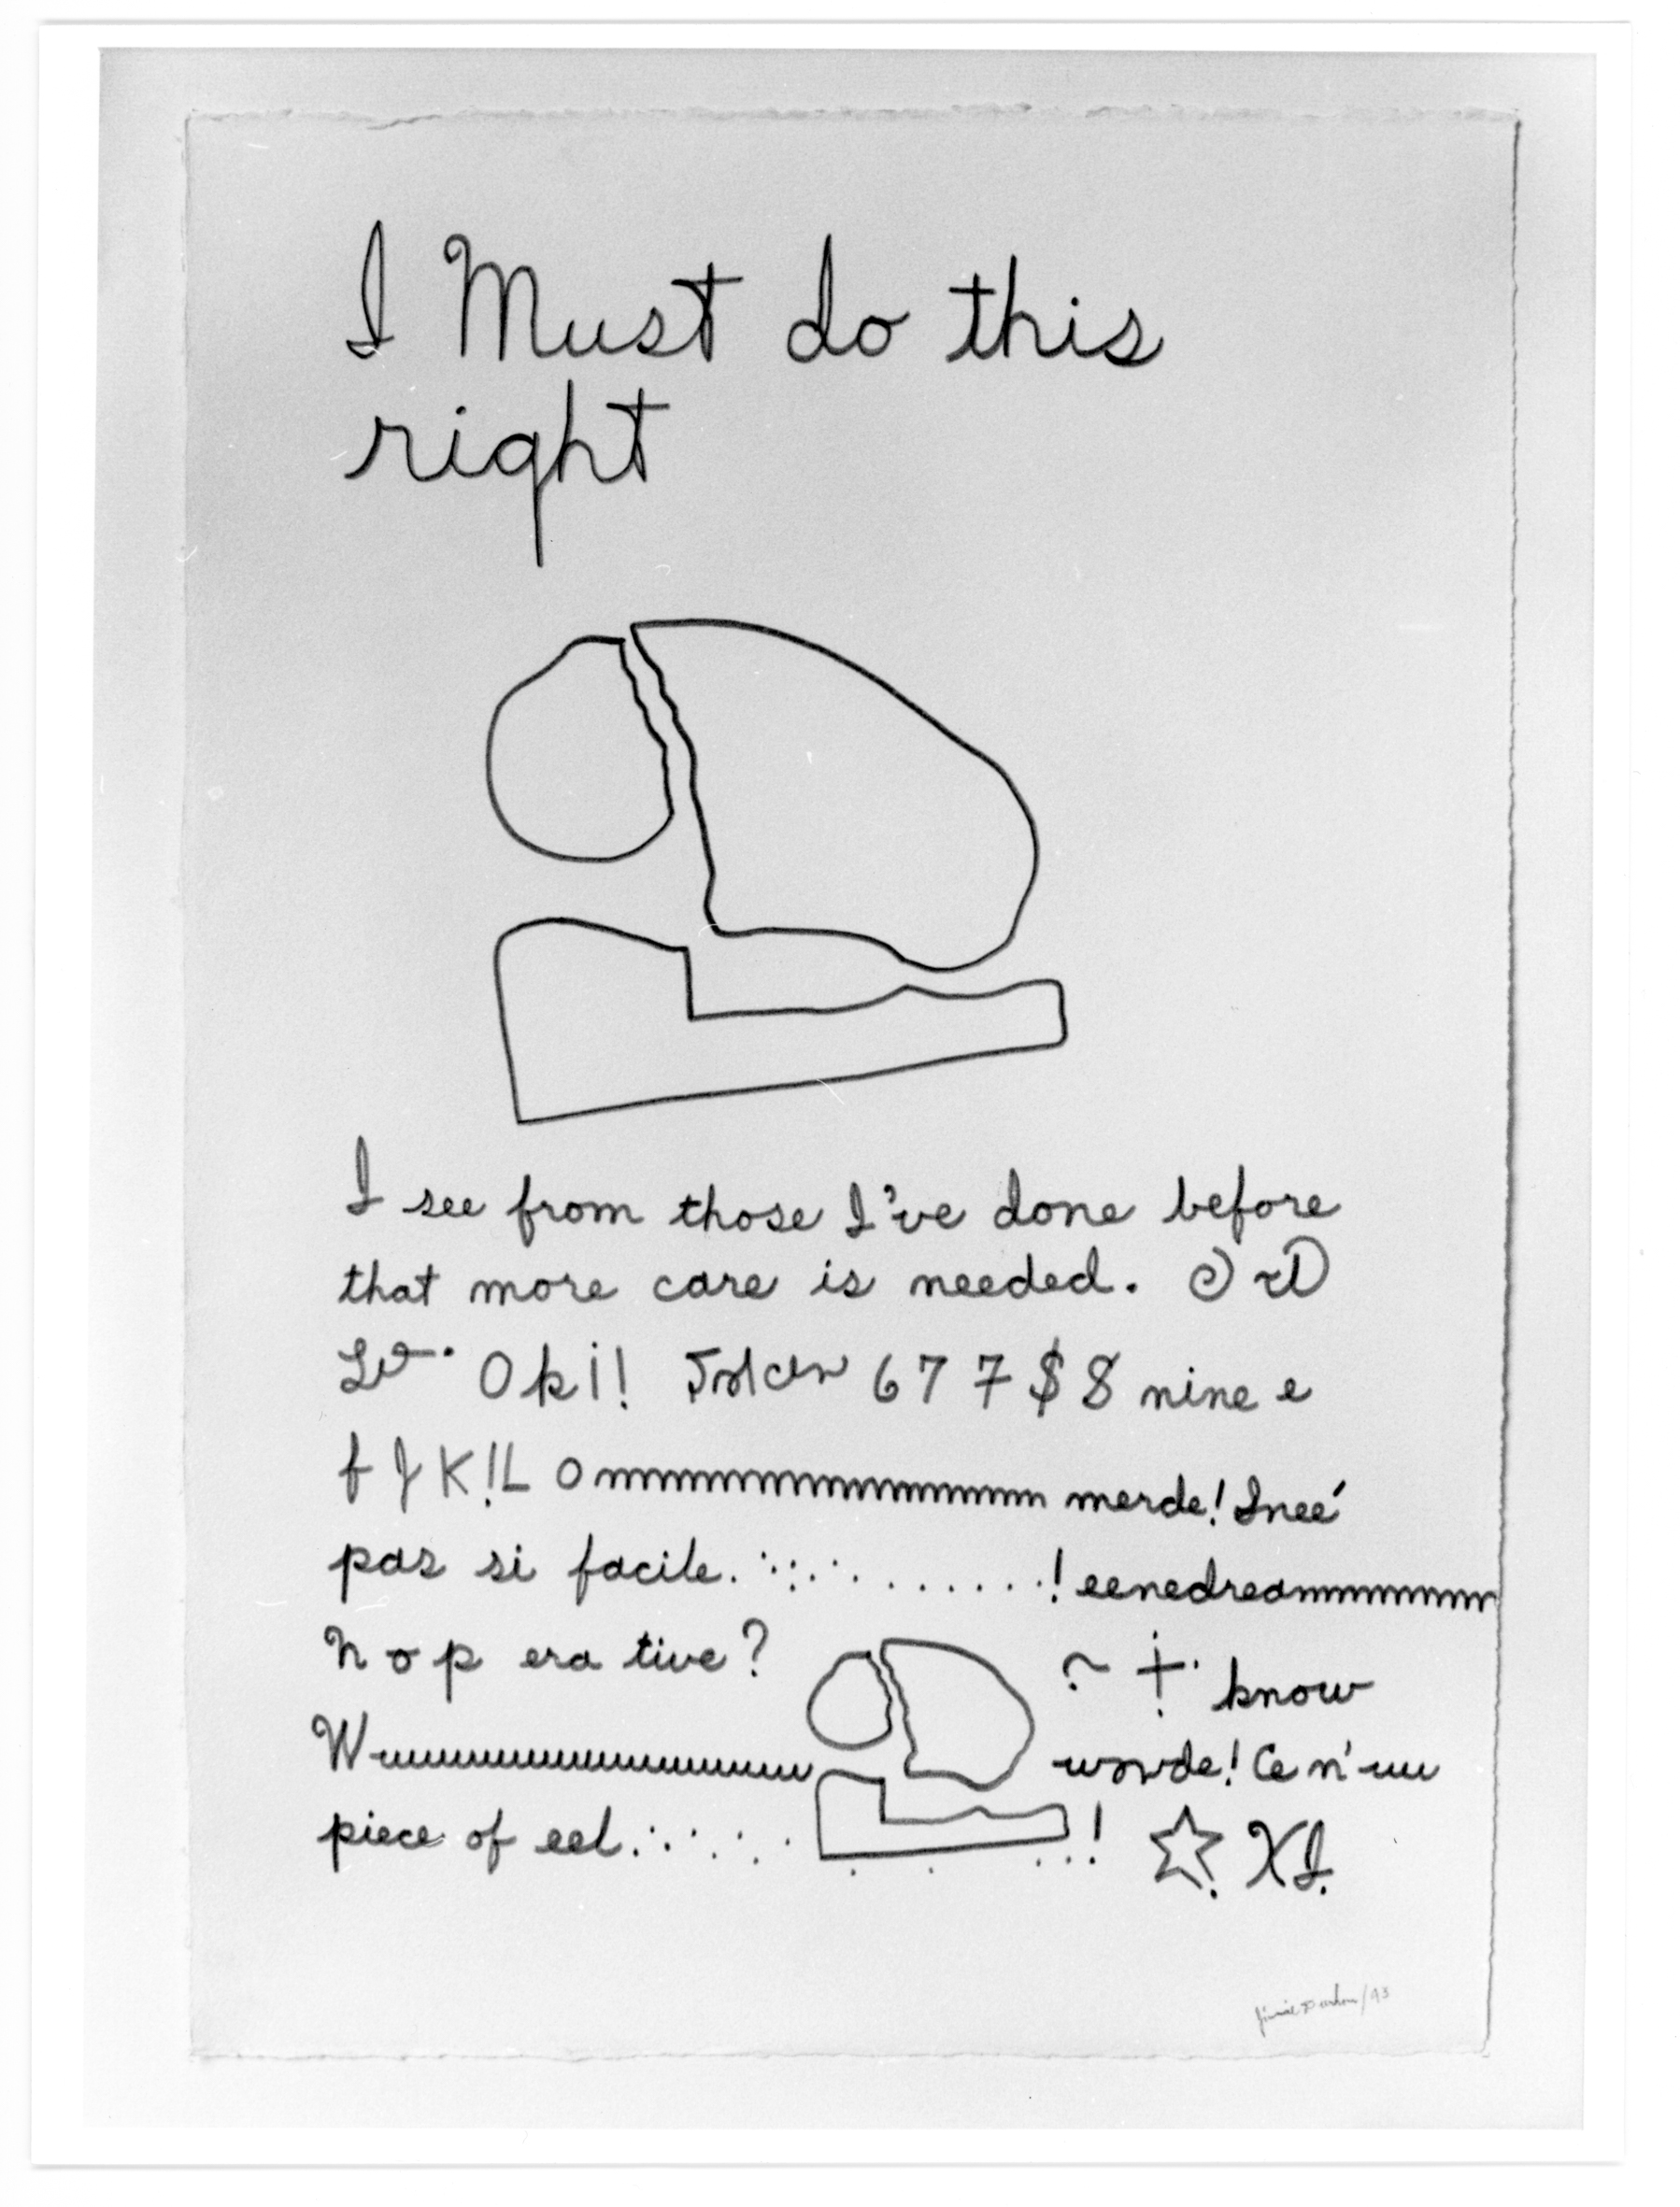 I Must do this
right
I see from those I've done before
that more care is needed.
Oki! 6 7 7 $ 8 nine e
f J K!L Ommmmmmmmmmmmmmmmm merde! Ineé
pas si facile. . . . . . . . . . . . . . . ! eenedreammmmmmmm
n o p era tive? know
Wuuuuuuuuuuuuuuuuuu ! Ce n'uu
piece of eel. . . . . . . . . . . ! XI.
/93